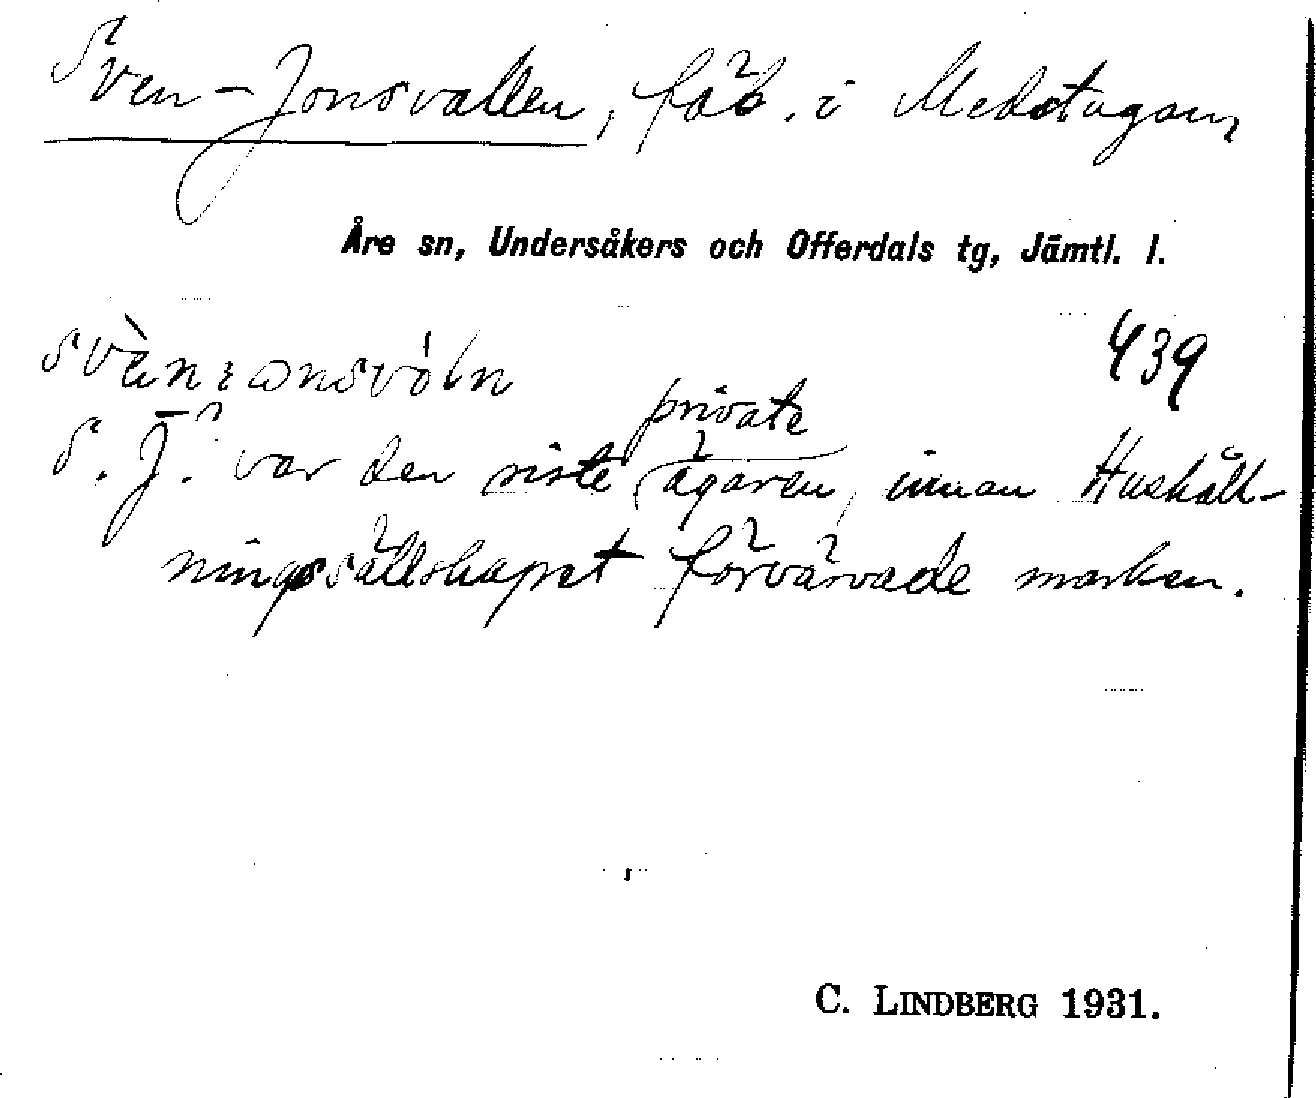 Sven-Jonsvallen, fäb. i Medstugan,
Åre sn, Undersåkers och Offerdals tg, Jämtl. l.
439
S. J. var den siste private ägaren, innan Hushåll-
ningssällskapet förvärvade marken.
C. LINDBERG 1931.